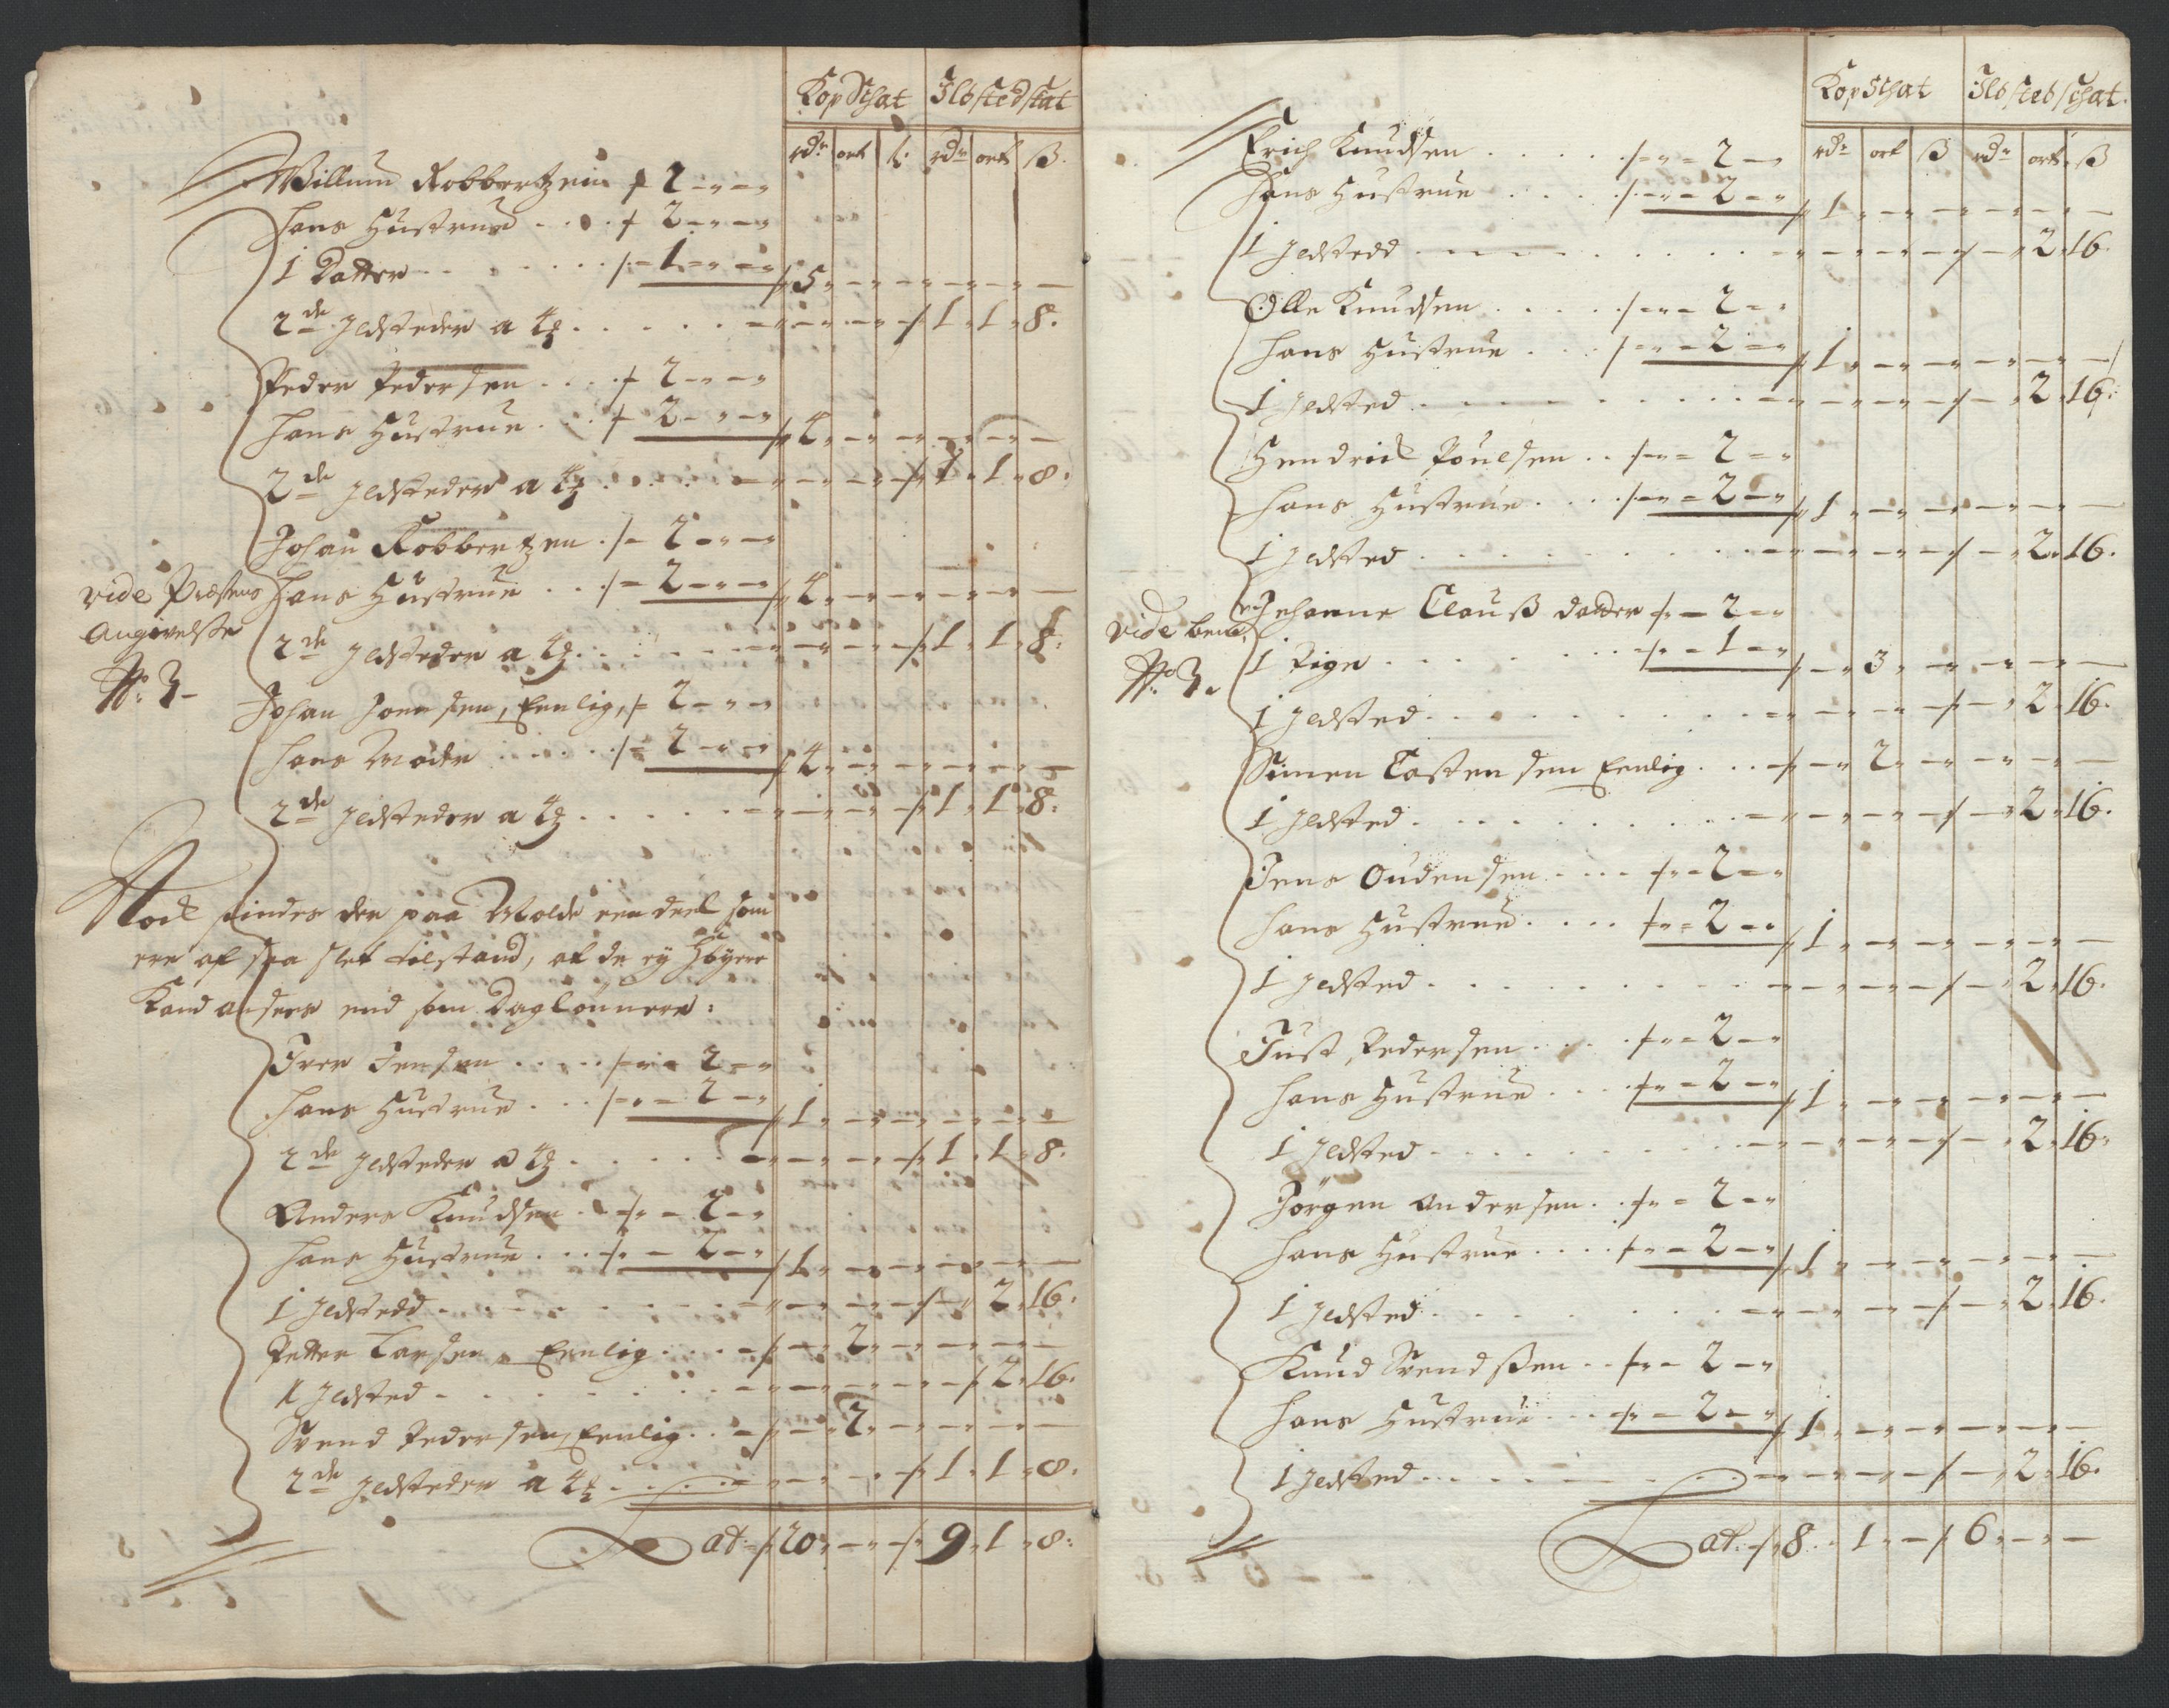 KopSchat Ildstedskat
rdr ort ß. rdr ort ß.
Willum Robbertzen 2 - -
Hans Hustrue 2 - -
1 Datter 1 - - 5 - -
2de Jldsteder a 4 1 1 8.
Peder Pedersen 2 - -
Hans Hustrue 2 - - 4 - -
2de Jldsteder a 4 1 1 8.
Johan Robbertzen 2 - -
vide Præstens Hans Hustrue 2 - - 4 - -
Angivelse
2de Jldsteder a 4 1 1 8:
No. 3
Johan Joensen, Eenlig, 2 - -
Hans Moder 2 - - 4 - -
2de Jldsteder a 4 1 1 8:
Nock findes der paa Molde een deel som
ere af saa slet tilstand, at de ey Høyere
Kand ansees end som Daglønnere:
Iver Jensen - 2 -
Hans Hustrue - 2 - 1 - -
2de Jldsteder a 4 1 1 8.
Anders Knudsen - 2 -
Hans Hustrue - 2 - 1 - -
1 Jldstedd - 2 16.
Petter Larsen Eenlig - 2 -
1 Jldsted - 2 16.
Svend Pedersen Eenlig - 2 -
2de Jldsteder a 4 1 1 8.
Lat 20 - - 9 1 8:
KopSchat Ildstedschat.
rdr ort ß rdr ort ß
Erich Knudsen - 2 -
Hans Hustrue - 2 - 1 - -
1 Jldstedd - 2 16.
Olle Knudsen - 2 -
Hans Hustrue - 2 - 1 - -
1 Jldsted - 2 16.
Hendrich Poulsen - 2 -
Hans Hustrue - 2 - 1 - -
1 Jldsted - 2 16.
Johanne Clauß datter - 2 -
vide
1 Pige - 1 - - 3 -
No. 3.
1 Jldsted - 2 16.
Simen Castensen Eenlig - 2 -
1 Jldsted - 2 16.
Jens Oudensen - 2 -
Hans Hustrue - 2 - 1 - -
1 Jldsted - 2 16.
Just Pedersen - 2 -
Hans Hustrue - 2 - 1 - -
1 Jldsted - 2 16.
Jörgen Andersen - 2 -
Hans Hustrue - 2 - 1 - -
1 Jldsted - 2 16.
Knud Svendßen - 2 -
Hans Hustrue - 2 - 1 - -
1 Jldsted - 2 16.
Lat 8 1 - 6 - -